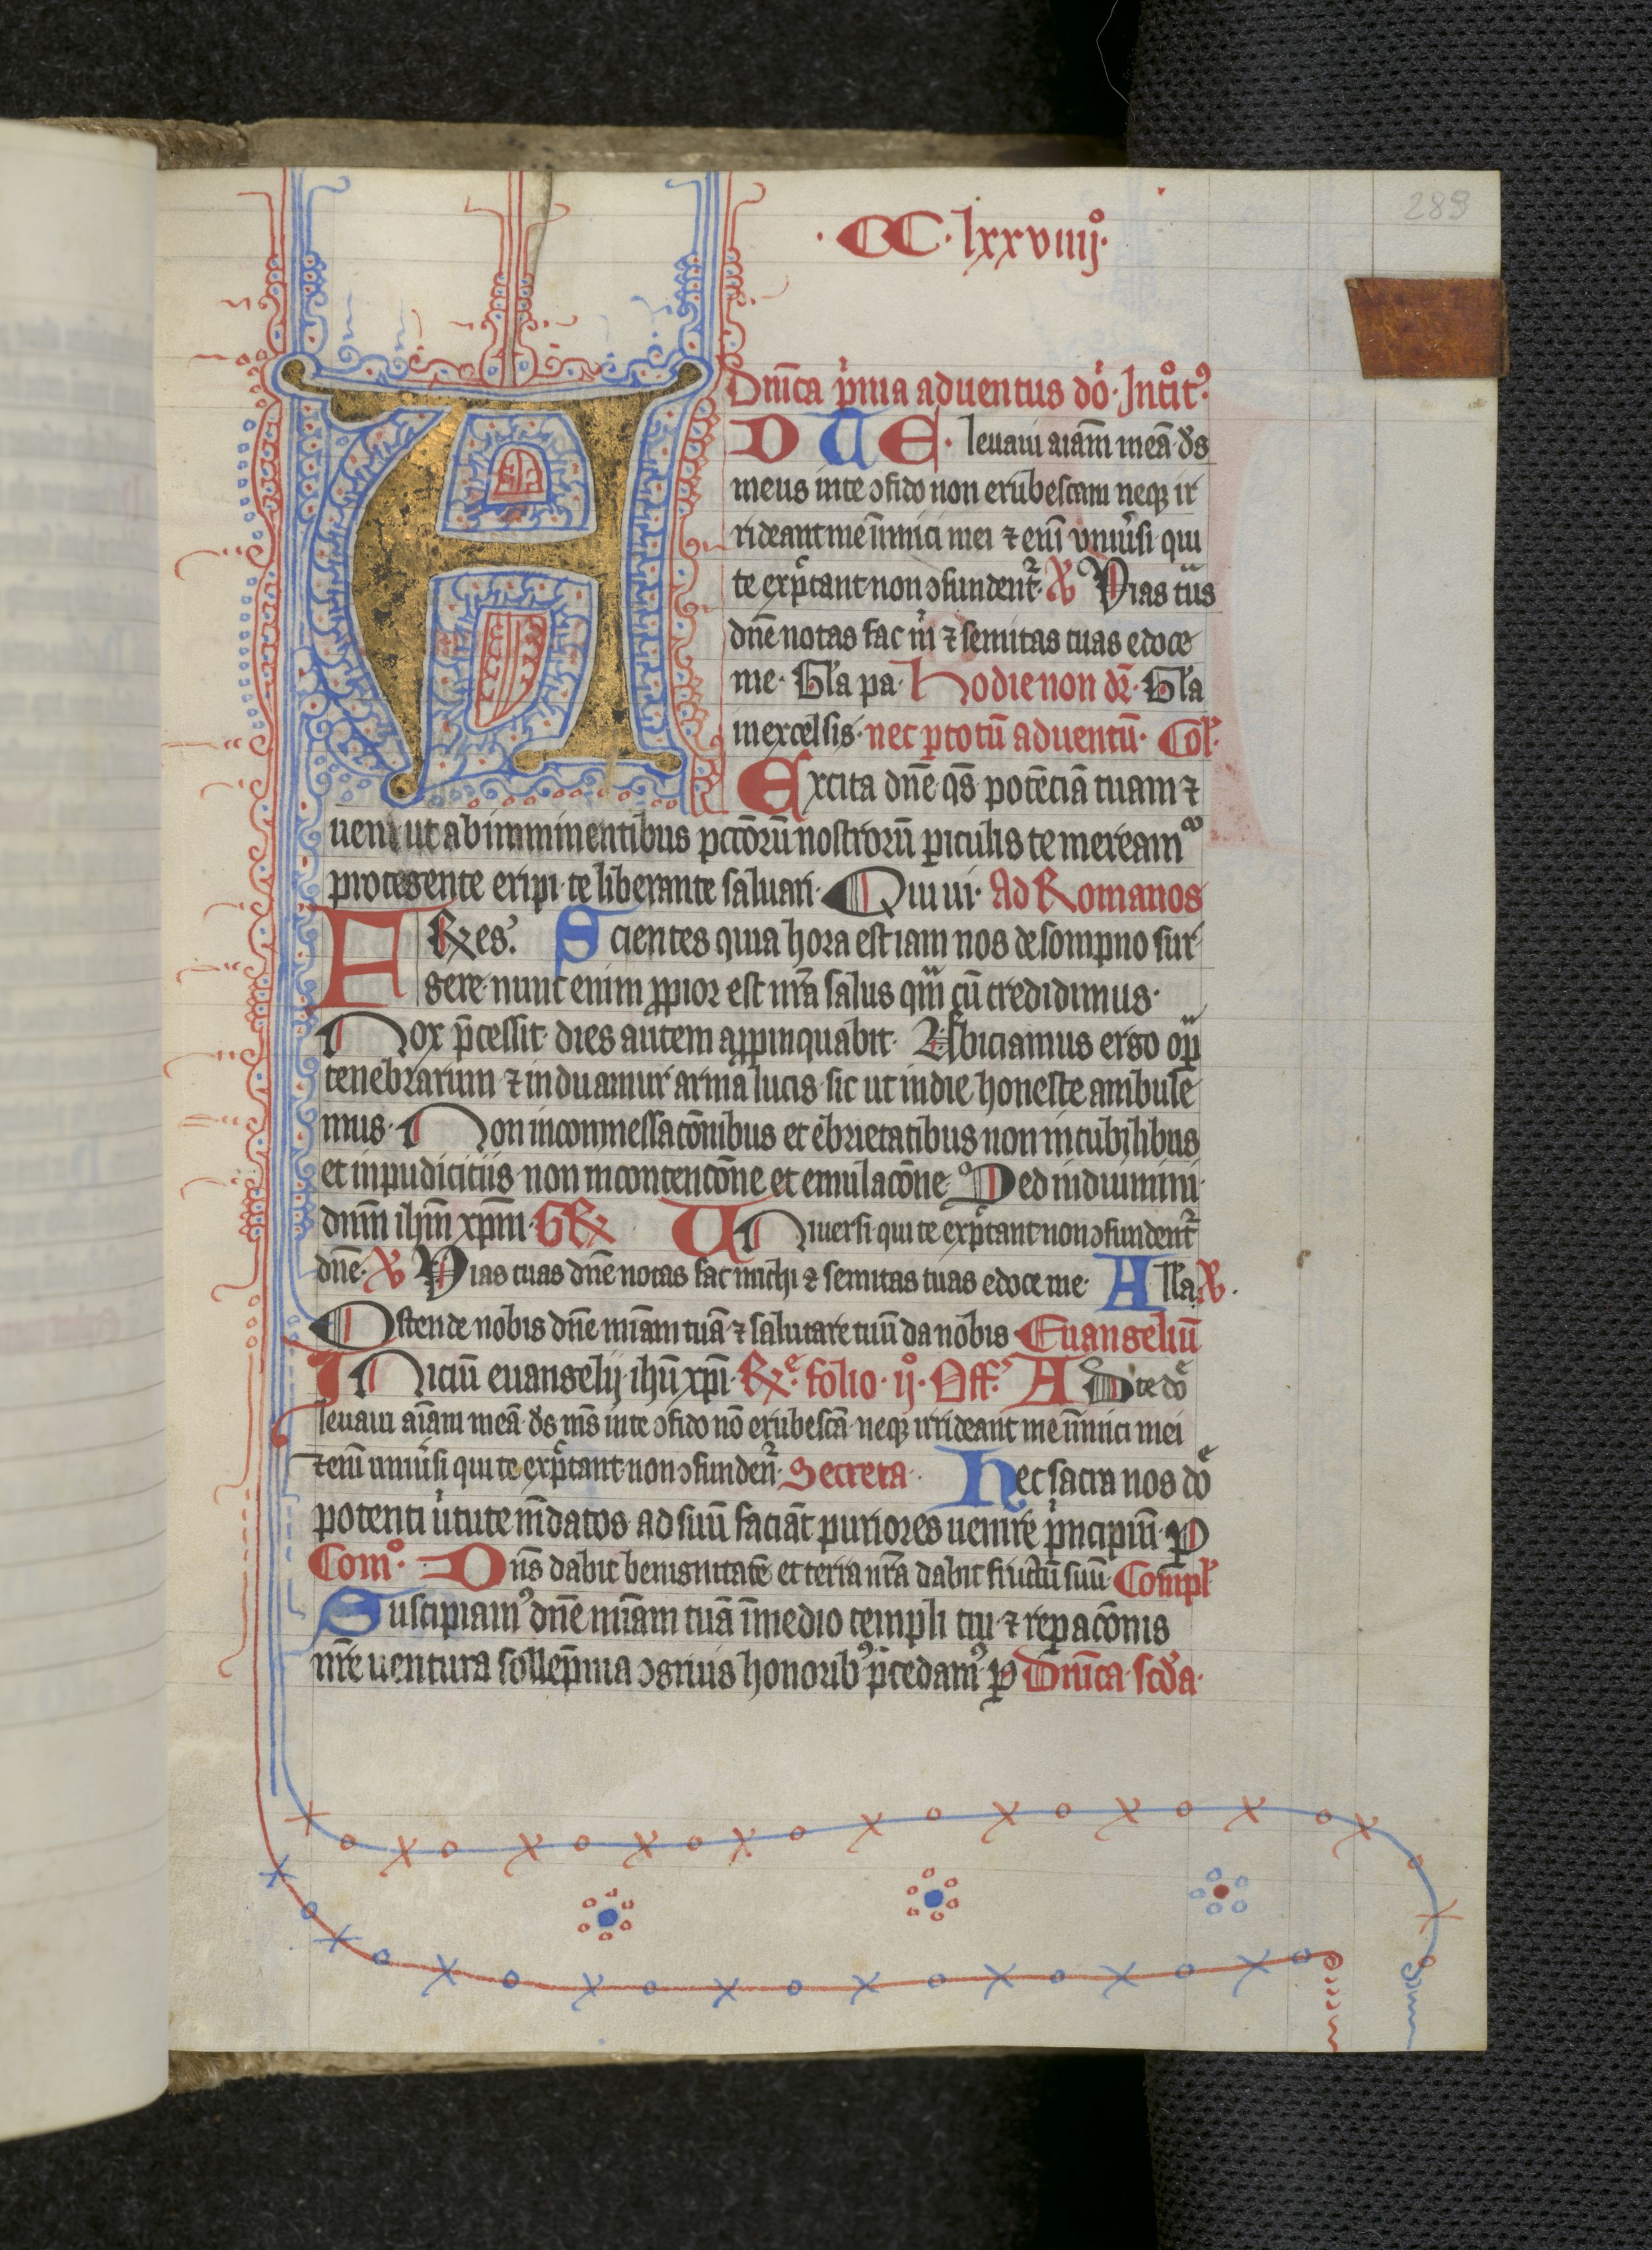 289
·CC·lxxviiij°·
Dnīca p̓ma aduentus dō· Jntͦit᾽
A
D TE· leuaui aīam meā d̄s
meus inte ɔfido non erubescam neqꝫ ir
rideant me īimici mei ⁊ eni̅ vniu̓si qui
te exp̄ctant non ɔfundent᷑ ℣ Vias tuas
dn̄e notas fac m̓ ⁊ semitas tuas edoce
me· Gl̓a pa· Hodie non dr̄· Gl̓a
inexcelsis· nec ꝑ totū aduentū· Col̓·
Excita dn̄e qs̄ potēciā tuam ⁊
ueni ut ab imminentibus pctōrū nostrorū ꝑiculis te meream᷑
protegente eripi· te liberante saluari· Qui ui· Ad Romanos
FRes᾽· Scientes quia hora est iam nos desompno sur
gere· nunc enim ꝓpior est nr̄a salus qm̄ cū credidimus·
Nox p̄cessit· dies autem aꝓpinquabit· Abiciamus ergo oꝑa
tenebrarum ⁊ induamur arma lucis· sic ut indie honeste ambule
mus· Non incommessacōnibus et ebrietatibus non incubilibus
et inpudiciciis non incontencōne et emulacōne· Sed induimini
dnm̄ ihm̄ xpm̄· G℟ UNiuersi qui te exp̄ctant non ɔfundent᷑
dn̄e· ℣ Vias tuas dn̄e notas fac michi ⁊ semitas tuas edoce me· All̓a ℣·
Ostende nobis dn̄e mīam tuā ⁊ salutare tuū da nobis Euangeliū
INiciū euangelij· ihū xpī· ℟ͤ· folio· ij°· Off᾽· AD te dōͤ
leuaui aīam meā· d̄s ms̄ inte ɔfido nō erubescā· neqꝫ irrideant me īimici mei
⁊ eni̅ uniu̓si qui te exp̄ctant non ɔfunden᷑· Secreta· Hec sacra nos dōͤ
potenti u̓tute mūdatos· ad suū faciāt puriores uenire p̓ncipiū· ꝑ
Com°· Dn̄s dabit benignitatē et terra nr̄a dabit fructū suū· Compl̓
Suscipiam᾽ dn̄e mīam tuā īmedio templi tui· ⁊ reꝑacōnis
nr̄e uentura sollēpnia ɔgruis honorib᾽ p̄cedam᾽ ꝑ Dnīca· scd̓a·